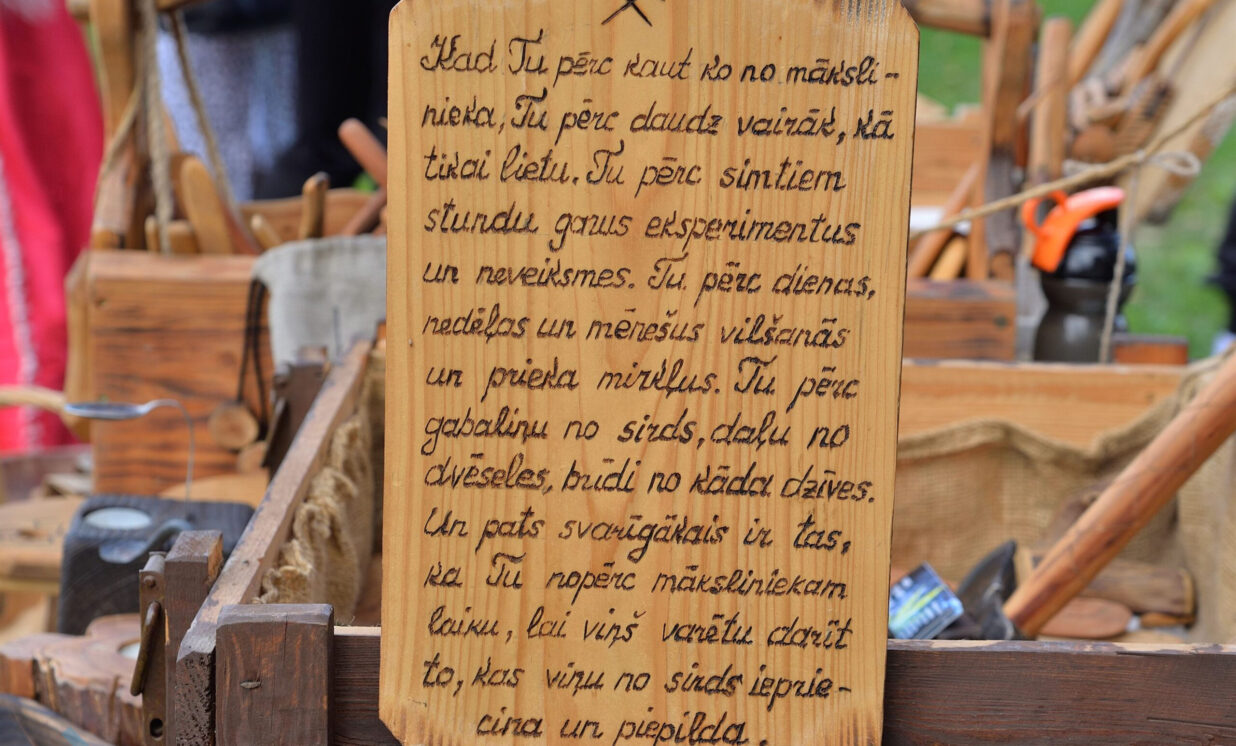 Kad Tu pērc kaut ko no māksli-
nieka, Tu pērc daudz vairāk, kā
tikai lietu. Tu pērc simtiem
stundu garus eksperimentus
un neveiksmes. Tu pērc dienas,
nedēļas un mēnešus vilšanās
un prieka mirkļus. Tu pērc
gabaliņu no sirds, daļu no
dvēseles, brīdi no kāda dzīves.
Un pats svarīgākais ir tas,
ka Tu nopērc māksliniekam
laiku, lai viņš varētu darīt
to, kas viņu no sirds ieprie-
cina un piepilda.